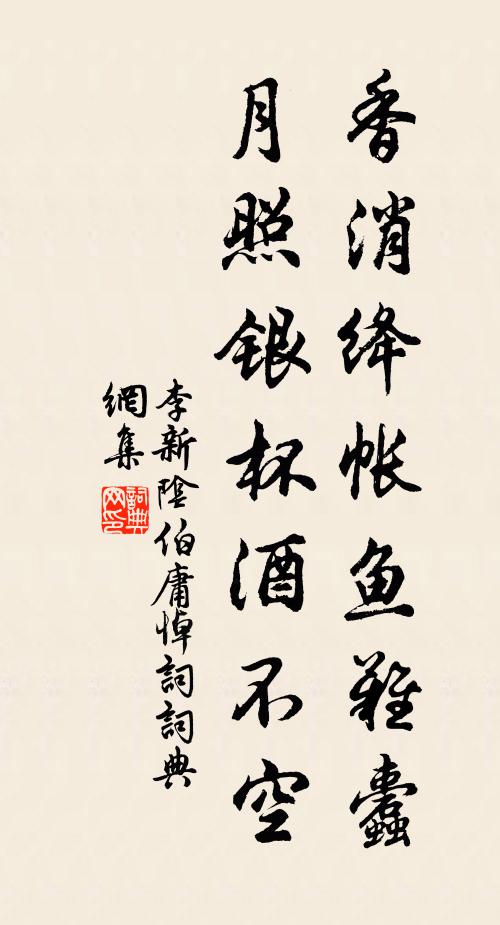 香消绛帐鱼难蠹
月照银杯酒不空
李新陰伯庸悼詞詞典
網集
詞典網印